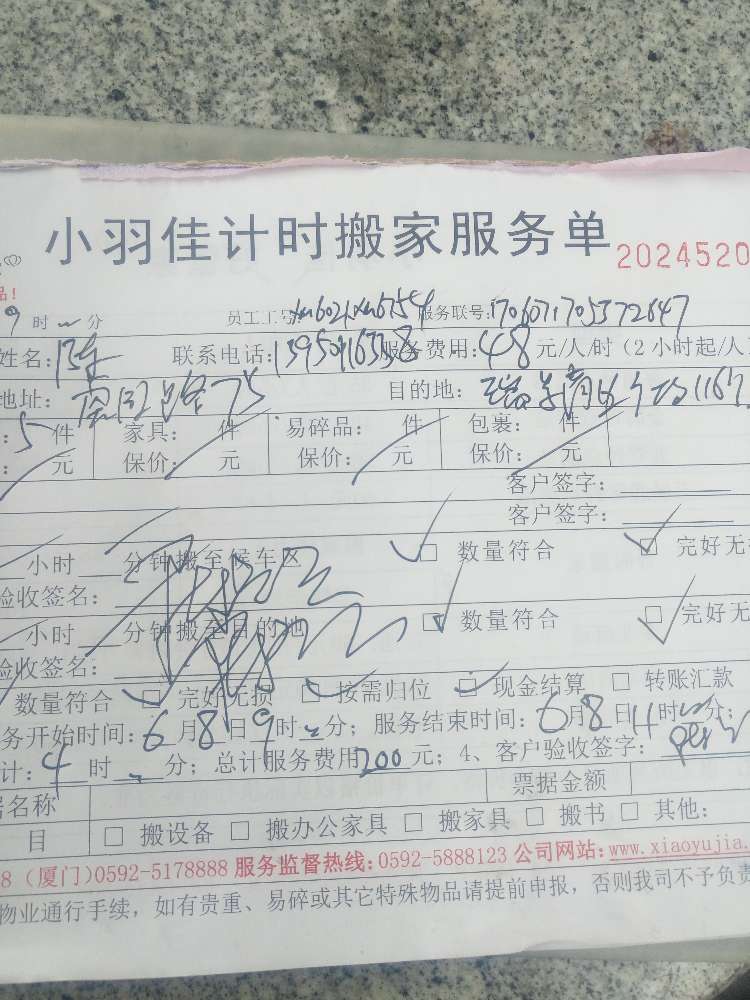 小羽佳计时搬家服务单 2024520
品!
9时 分 员工工号: xm6021xm6754 服务联号:1706071705372647
姓名:陈 联系电话: 服务费用:48元/人/时(2小时起/人
地址: 75 目的地:
:5件 家具: 件 易碎品: 件 包裹: 件
: 元 保价: 元 保价: 元 保价: 元
客户签字:
客户签字:
小时 分钟搬至候车区 □ 数量符合 □ 完好无
验收签名:
小时 分钟搬至目的地 □ 数量符合 □ 完好无
验收签名:
数量符合 □ 完好无损 □ 按需归位 □ 现金结算 □ 转账汇款
务开始时间:6月8日9时 分;服务结束时间:6月8日11时 分;
计:4时 分;总计服务费用200元;4、客户验收签字:
名称 票据金额
目 □ 搬设备 □ 搬办公家具 □ 搬家具 □ 搬书 □ 其他:
8(厦门)0592-5178888 服务监督热线:0592-5888123 公司网站:www.xiaoyujia.
物业通行手续,如有贵重、易碎或其它特殊物品请提前申报,否则我司不予负责